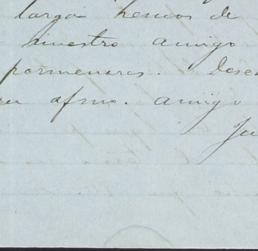 larga hemos de
nuestro amigo
pormenores. Dese
su afmo. amigo
Ju